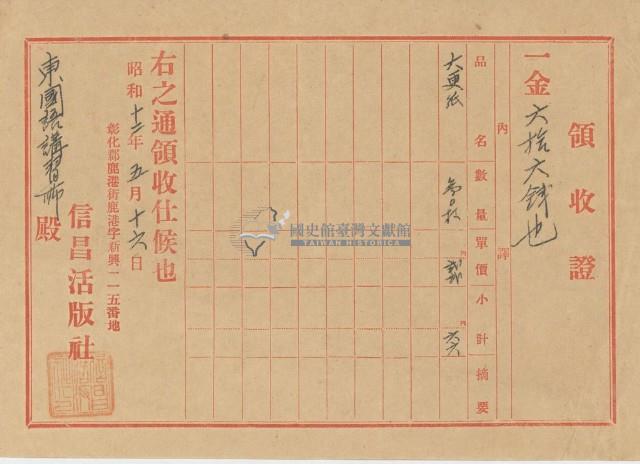 領收證
一金六拾六錢也
內譯
品名 數量 單價 小計 摘要
大更紙
右之通領收仕候也
昭和十二年五月十六日
彰化郡鹿港街鹿港字新興一一五番地
信昌活版社
東國語講習所殿
國史館臺灣文獻館
TAIWAN HISTORICA